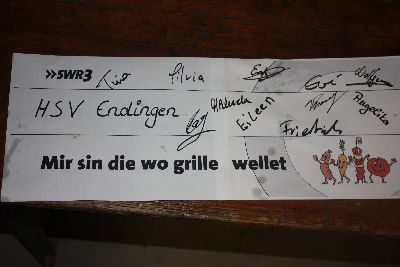 SWR3 Tino Silvia Evi Wolfgang
HSV Endingen Eileen Angelika
Friedrich
Mir sin die wo grille wellet